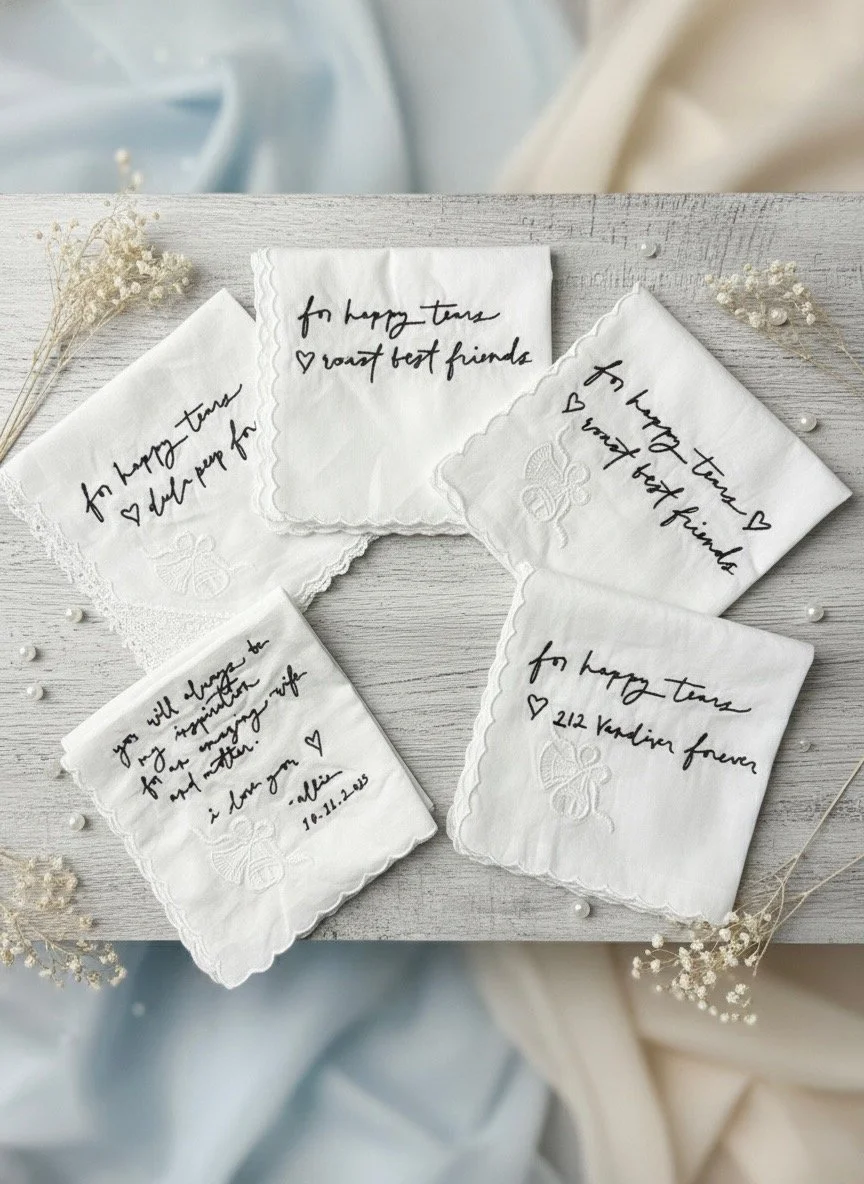 for happy tears
♡ roast best friends
for happy tears
♡ peep for
for happy tears ♡
♡ roast best friends
you will always be
my inspiration
for an amazing wife
and mother.
i love you ♡
-allie
for happy tears
♡ 212 Vandiver forever